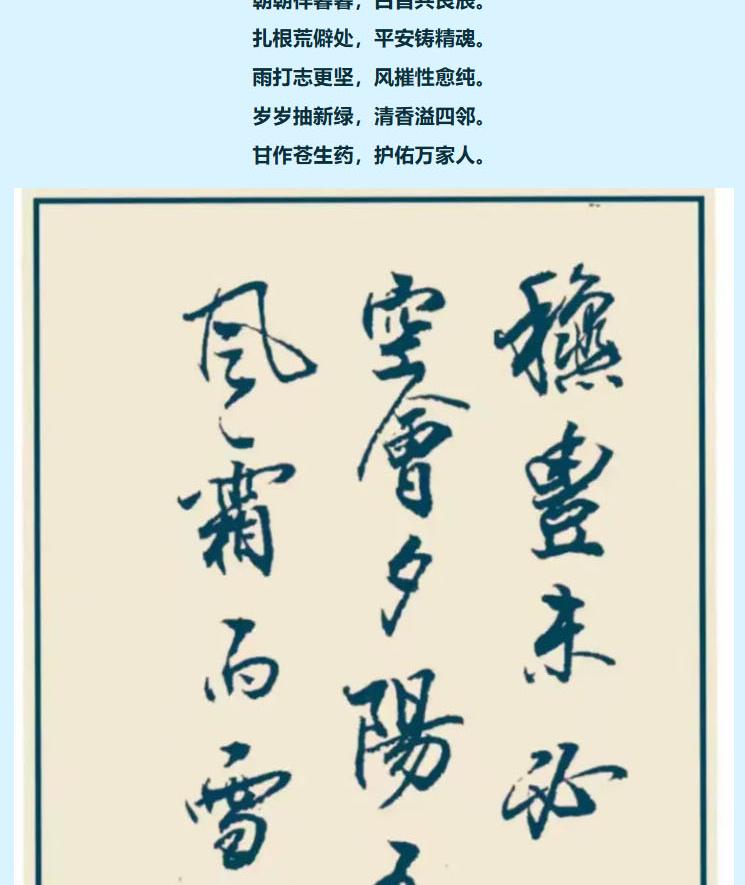 朝朝伴暮暮，白首共良辰。
扎根荒僻处，平安铸精魂。
雨打志更坚，风摧性愈纯。
岁岁抽新绿，清香溢四邻。
甘作苍生药，护佑万家人。
豐未必
空會夕陽
風霜雨雪